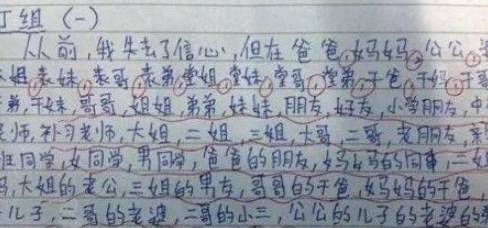 丁组（一）
从前，我失去了信心，但在爸爸，妈妈，公公，
姐，表妹，表哥，表弟，堂姐，堂妹，堂哥，堂弟，干爸，干妈，干哥
弟，干妹，哥哥，姐姐，弟弟，妹妹，朋友，好友，小学朋友，中
老师，补习老师，大姐，二姐，三姐，大哥，二哥，老朋友，
班同学，女同学，男同学，爸爸的朋友，妈妈的同事，二
妈，大姐的老公，三姐的男友，哥哥的干爸，妈妈的干爸，
儿子，二哥的老婆，二哥的小三，公公的儿子的老婆的